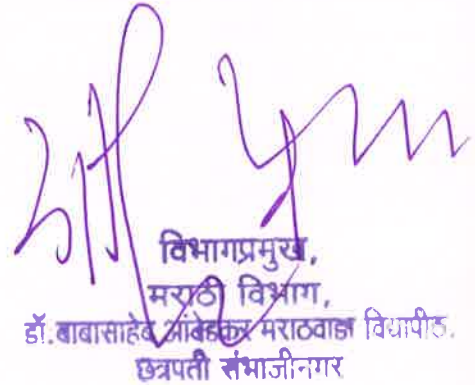 विभागप्रमुख,
मराठी विभाग,
डॉ.बाबासाहेब आंबेडकर मराठवाडा विद्यापीठ.
छत्रपती संभाजीनगर